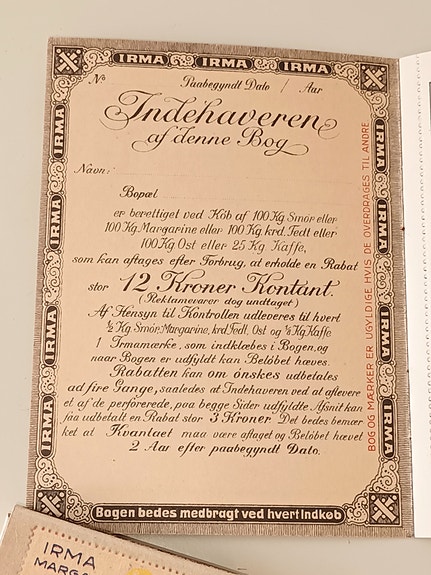 IRMA IRMA IRMA
No Paabegyndt Dato / Aar
Indehaveren
af denne Bog
Navn:
Bopæl
er berettiget ved Køb af 100 Kg Smør eller
100 Kg. Margarine eller 100 Kg. krd. Fedt eller
100 Kg Ost eller 25 Kg Kaffe,
som kan aftages efter Forbrug, at erholde en Rabat
stor 12 Kroner Kontant.
(Reklamevarer dog undtaget)
Af Hensyn til Kontrollen udleveres til hvert
½ Kg Smør, Margarine, krd Fedt, Ost og ⅛ Kg Kaffe
1 Irmamærke, som indklæbes i Bogen, og
naar Bogen er udfyldt kan Beløbet hæves.
Rabatten kan om ønskes udbetales
ad fire Gange, saaledes at Indehaveren ved at aflevere
et af de perforerede, paa begge Sider udfyldte Afsnit kan
faa udbetalt en Rabat stor 3 Kroner Det bedes bemær
ket at Kvantaet maa være aftaget og Beløbet hævet
2 Aar efter paabegyndt Dato.
IRMA
IRMA
IRMA
IRMA
IRMA
IRMA
IRMA
IRMA
BOG OG MÆRKER ER UGYLDIGE HVIS DE OVERDRAGES TIL ANDRE
Bogen bedes medbragt ved hvert Indkøb
IRMA